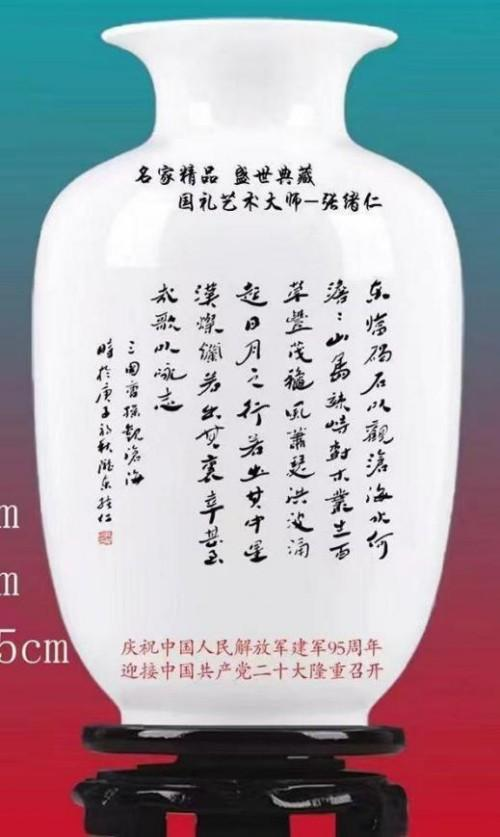 名家精品 盛世典藏
国礼艺术大师—张绪仁
东临碣石以觀滄海水何
澹:山島竦峙树木叢生百
草豐茂穐風蕭瑟洪波涌
起日月之行若出其中星
漢燦爛若出其裏幸甚至
哉歌以咏志
三国曹操觀滄海
時於庚子初秋隴东绪仁
m
m
5cm
庆祝中国人民解放军建军95周年
迎接中国共产党二十大隆重召开